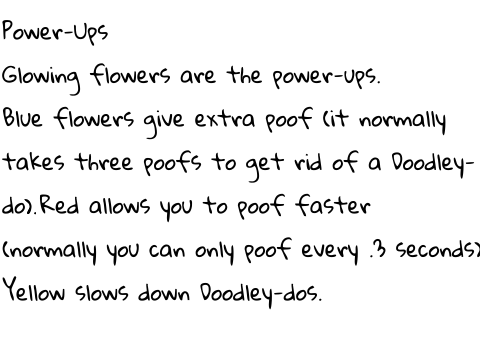 Power-Ups
Glowing flowers are the power-ups.
Blue flowers give extra poof (it normally
takes three poofs to get rid of a Doodley-
do).Red allows you to poof faster
(normally you can only poof every .3 seconds)
Yellow slows down Doodley-dos.